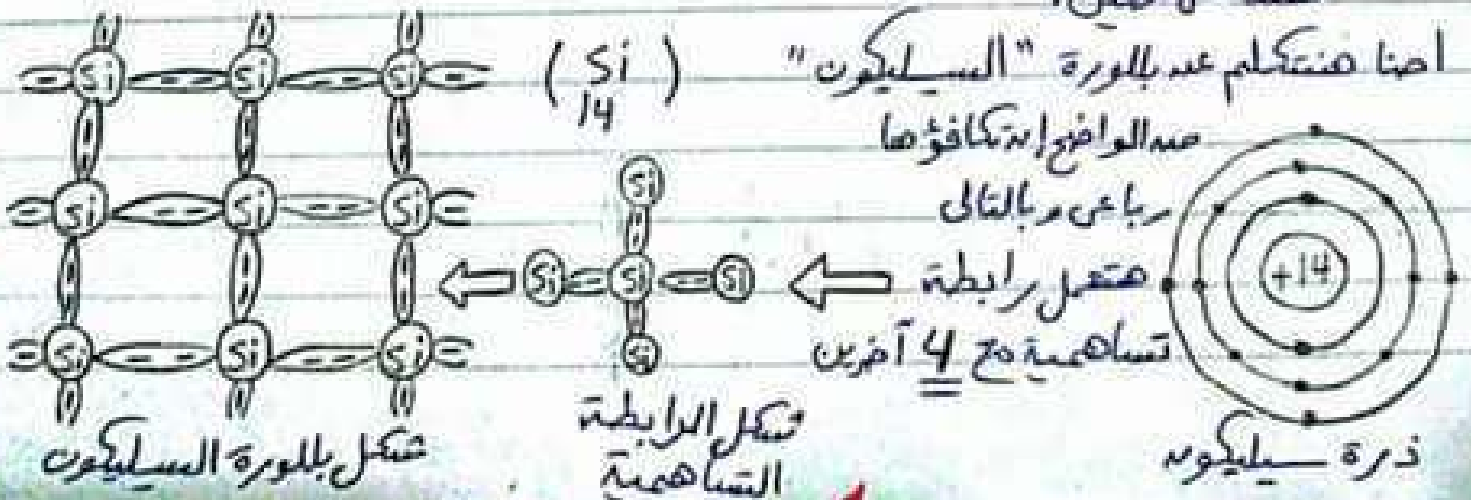 احنا هنتكلم عن بللورة "السيليكون" (Si 14)
من الواضح إن تكافؤها
رباعى وبالتالى
هتعمل رابطة
تساهمية مع 4 آخرين
+14
ذرة سيليكون
Si
Si Si Si
Si
شكل الرابطة
التساهمية
Si Si Si
Si Si Si
Si Si Si
شكل بللورة السيليكون